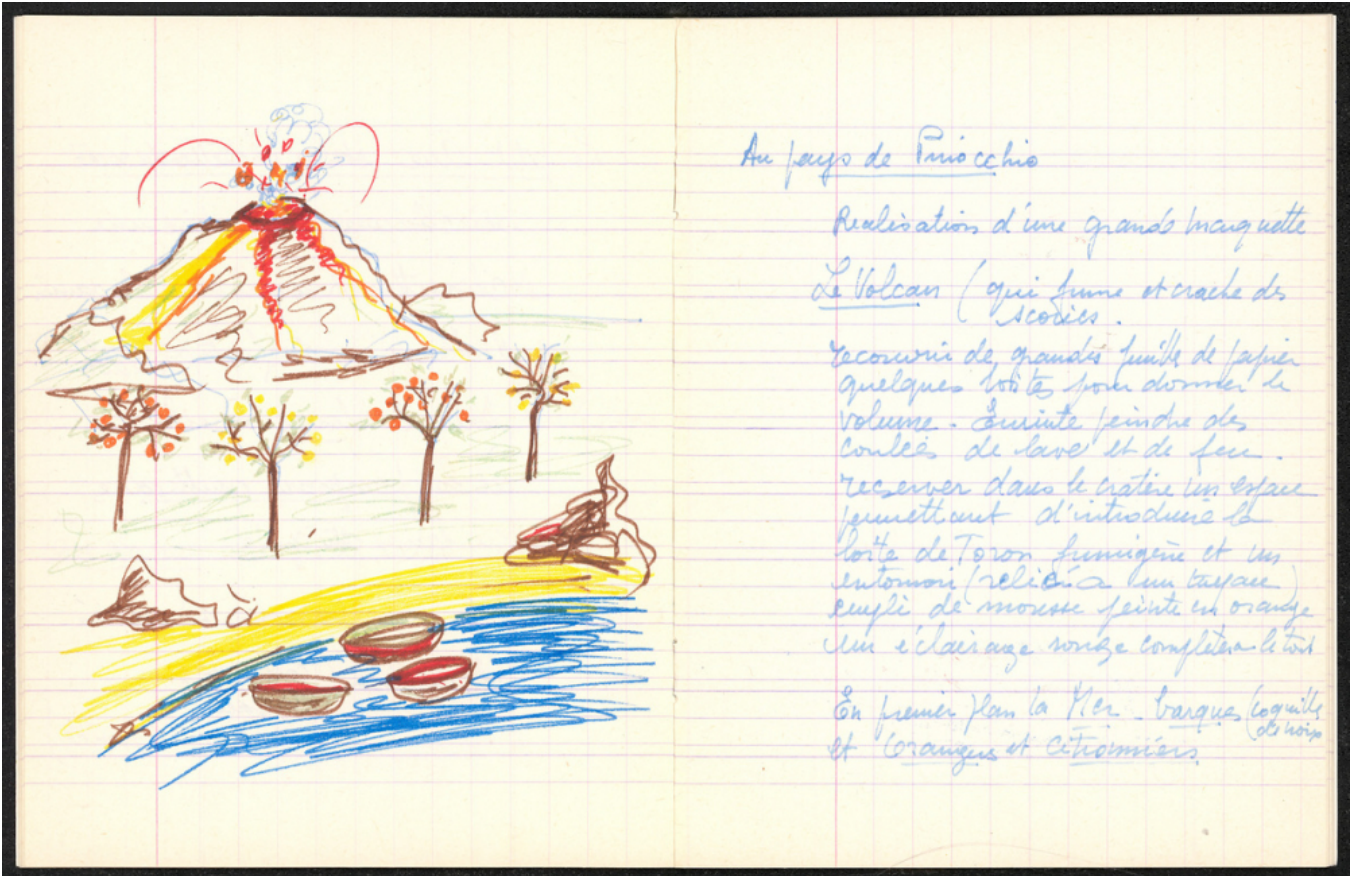 Au pays de Pinocchio
Realisation d'une grande maquette
Le Volcan (qui fume et crache des
scories.
recouvrir de grandes feuille de papier
quelques boites pour donner le
volume. Ensuite peindre des
coulées de lave et de feu.
reserver dans le cratère un espace
permettant d'introduire la
boite de Toron fumigène et un
entonnoir (relié à un tuyau)
empli de mousse peinte en orange
un éclairage rouge complètera le tout
En premier plan la Mer - barques (coquilles
de noix
et orangers et citronniers